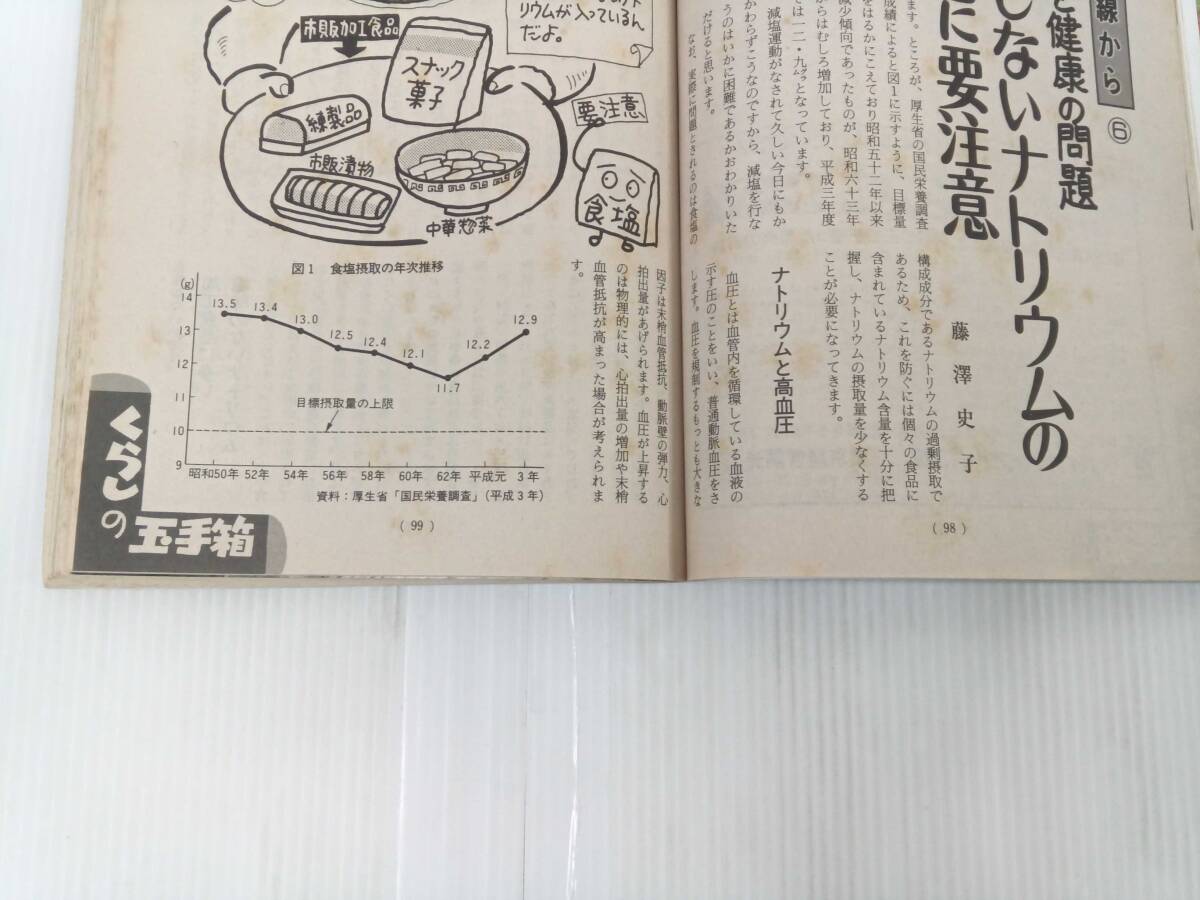 線から
⑥
と健康の問題
しないナトリウムの
に要注意
藤澤史子
ます。ところが、厚生省の国民栄養調査
成績によると図1に示すように、目標量
をはるかにこえており昭和五十二年以来
減少傾向であったものが、昭和六十三年
からはむしろ増加しており、平成三年度
では一二・九㌘となっています。
減塩運動がなされて久しい今日にもか
かわらずこうなのですから、減塩を行な
うのはいかに困難であるかおわかりいた
だけると思います。
なお、実際に問題とされるのは食塩の
構成成分であるナトリウムの過剰摂取で
あるため、これを防ぐには個々の食品に
含まれているナトリウム含量を十分に把
握し、ナトリウムの摂取量を少なくする
ことが必要になってきます。
ナトリウムと高血圧
血圧とは血管内を循環している血液の
示す圧のことをいい、普通動脈血圧をさ
します。血圧を規制するもっとも大きな
(98)
リウムが入っているん
だよ。
の
市販加工食品
スナック
菓子
練製品
市販漬物
中華惣菜
要注意
食塩
因子は末梢血管抵抗、動脈壁の弾力、心
拍出量があげられます。血圧が上昇する
のは物理的には、心拍出量の増加や末梢
血管抵抗が高まった場合が考えられま
す。
図1 食塩摂取の年次推移
(g)
14
13
12
11
10
9
13.5
13.4
13.0
12.5
12.4
12.1
11.7
12.2
12.9
目標摂取量の上限
昭和50年 52年 54年 56年 58年 60年 62年 平成元 3年
資料:厚生省「国民栄養調査」(平成3年)
(99)
くらしの
玉手箱